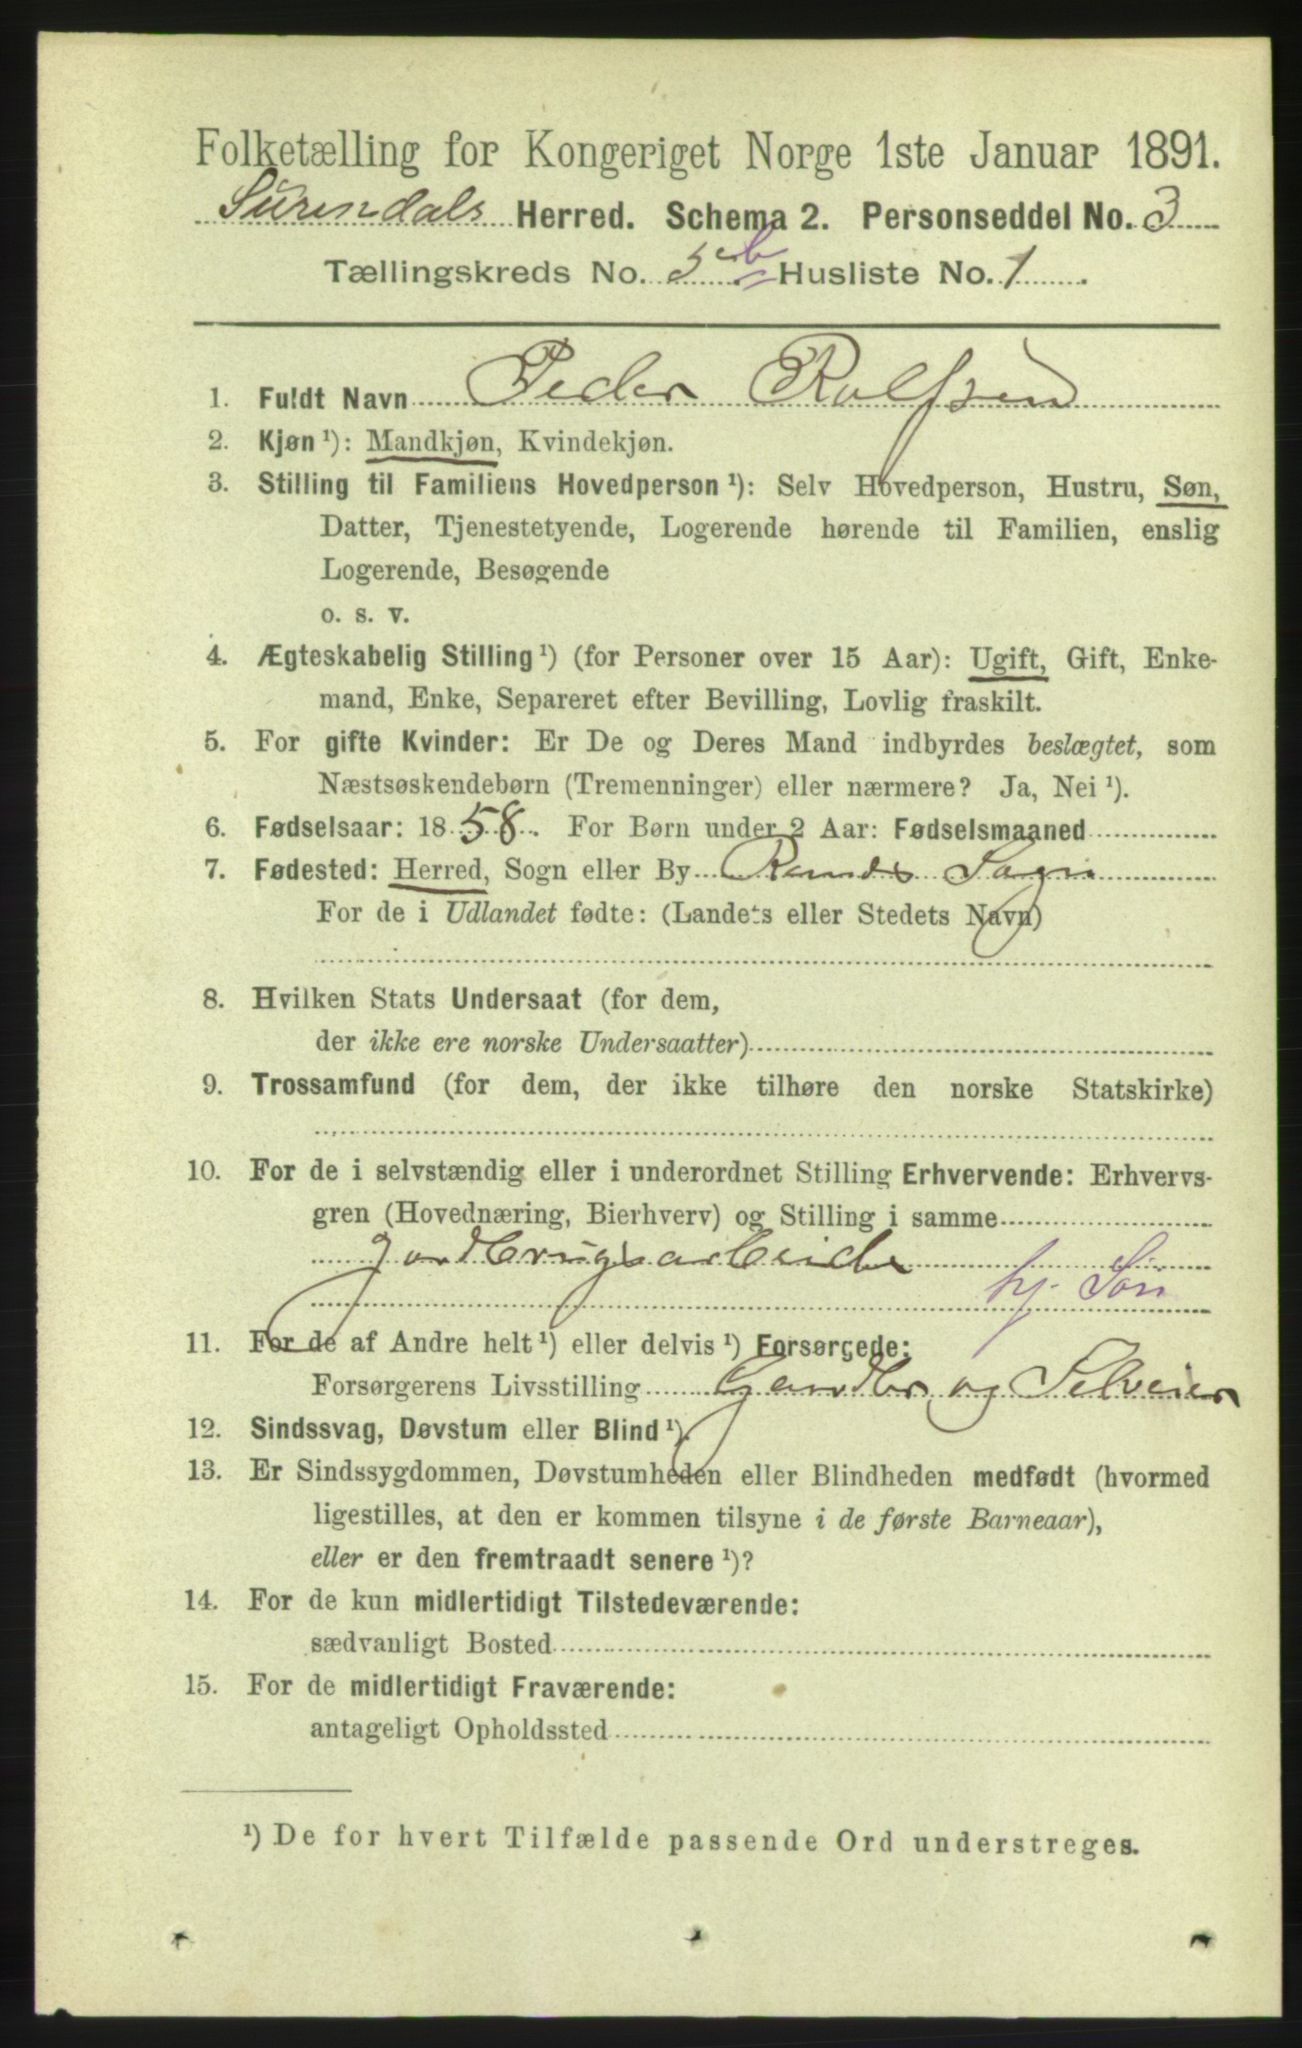 Folketælling for Kongeriget Norge 1ste Januar 1891.
Surendals Herred. Schema 2. Personseddel No. 3
Tællingskreds No. 5 b Husliste No. 1
1. Fuldt Navn Peder Rolfsen
2. Kjøn ¹): Mandkjøn, Kvindekjøn.
3. Stilling til Familiens Hovedperson ¹): Selv Hovedperson, Hustru, Søn,
Datter, Tjenestetyende, Logerende hørende til Familien, enslig
Logerende, Besøgende
o. s. v.
4. Ægteskabelig Stilling ¹) (for Personer over 15 Aar): Ugift, Gift, Enke-
mand, Enke, Separeret efter Bevilling, Lovlig fraskilt.
5. For gifte Kvinder: Er De og Deres Mand indbyrdes beslægtet, som
Næstsøskendebørn (Tremenninger) eller nærmere? Ja, Nei ¹).
6. Fødselsaar: 1858. For Børn under 2 Aar: Fødselsmaaned
7. Fødested: Herred, Sogn eller By Ranes Sogn
For de i Udlandet fødte: (Landets eller Stedets Navn)
8. Hvilken Stats Undersaat (for dem,
der ikke ere norske Undersaatter)
9. Trossamfund (for dem, der ikke tilhøre den norske Statskirke)
10. For de i selvstændig eller i underordnet Stilling Erhvervende: Erhvervs-
gren (Hovednæring, Bierhverv) og Stilling i samme
Jordbrugsarbeide
hj. Søn
11. For de af Andre helt ¹) eller delvis ¹) Forsørgede:
Forsørgerens Livsstilling Gardbr. og Selveier
12. Sindssvag, Døvstum eller Blind ¹).
13. Er Sindssygdommen, Døvstumheden eller Blindheden medfødt (hvormed
ligestilles, at den er kommen tilsyne i de første Barneaar),
eller er den fremtraadt senere ¹)?
14. For de kun midlertidigt Tilstedeværende:
sædvanligt Bosted
15. For de midlertidigt Fraværende:
antageligt Opholdssted
¹) De for hvert Tilfælde passende Ord understreges.